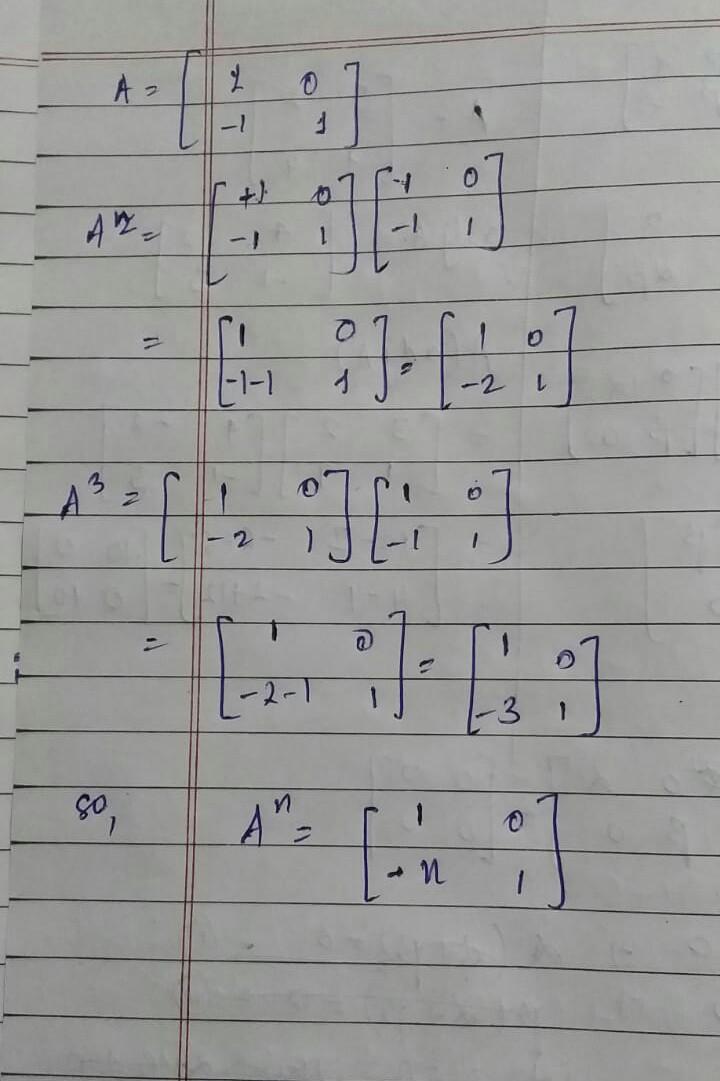 A = [ 1 0
-1 1 ]
A² = [ +1 0 ] [ -1 0 ]
[ -1 1 ] [ -1 1 ]
= [ 1 0 ] = [ 1 0 ]
[ -1-1 1 ] [ -2 1 ]
A³ = [ 1 0 ] [ 1 0 ]
[ -2 1 ] [ -1 1 ]
= [ 1 0 ] = [ 1 0 ]
[ -2-1 1 ] [ -3 1 ]
so, Aⁿ = [ 1 0 ]
[ -n 1 ]